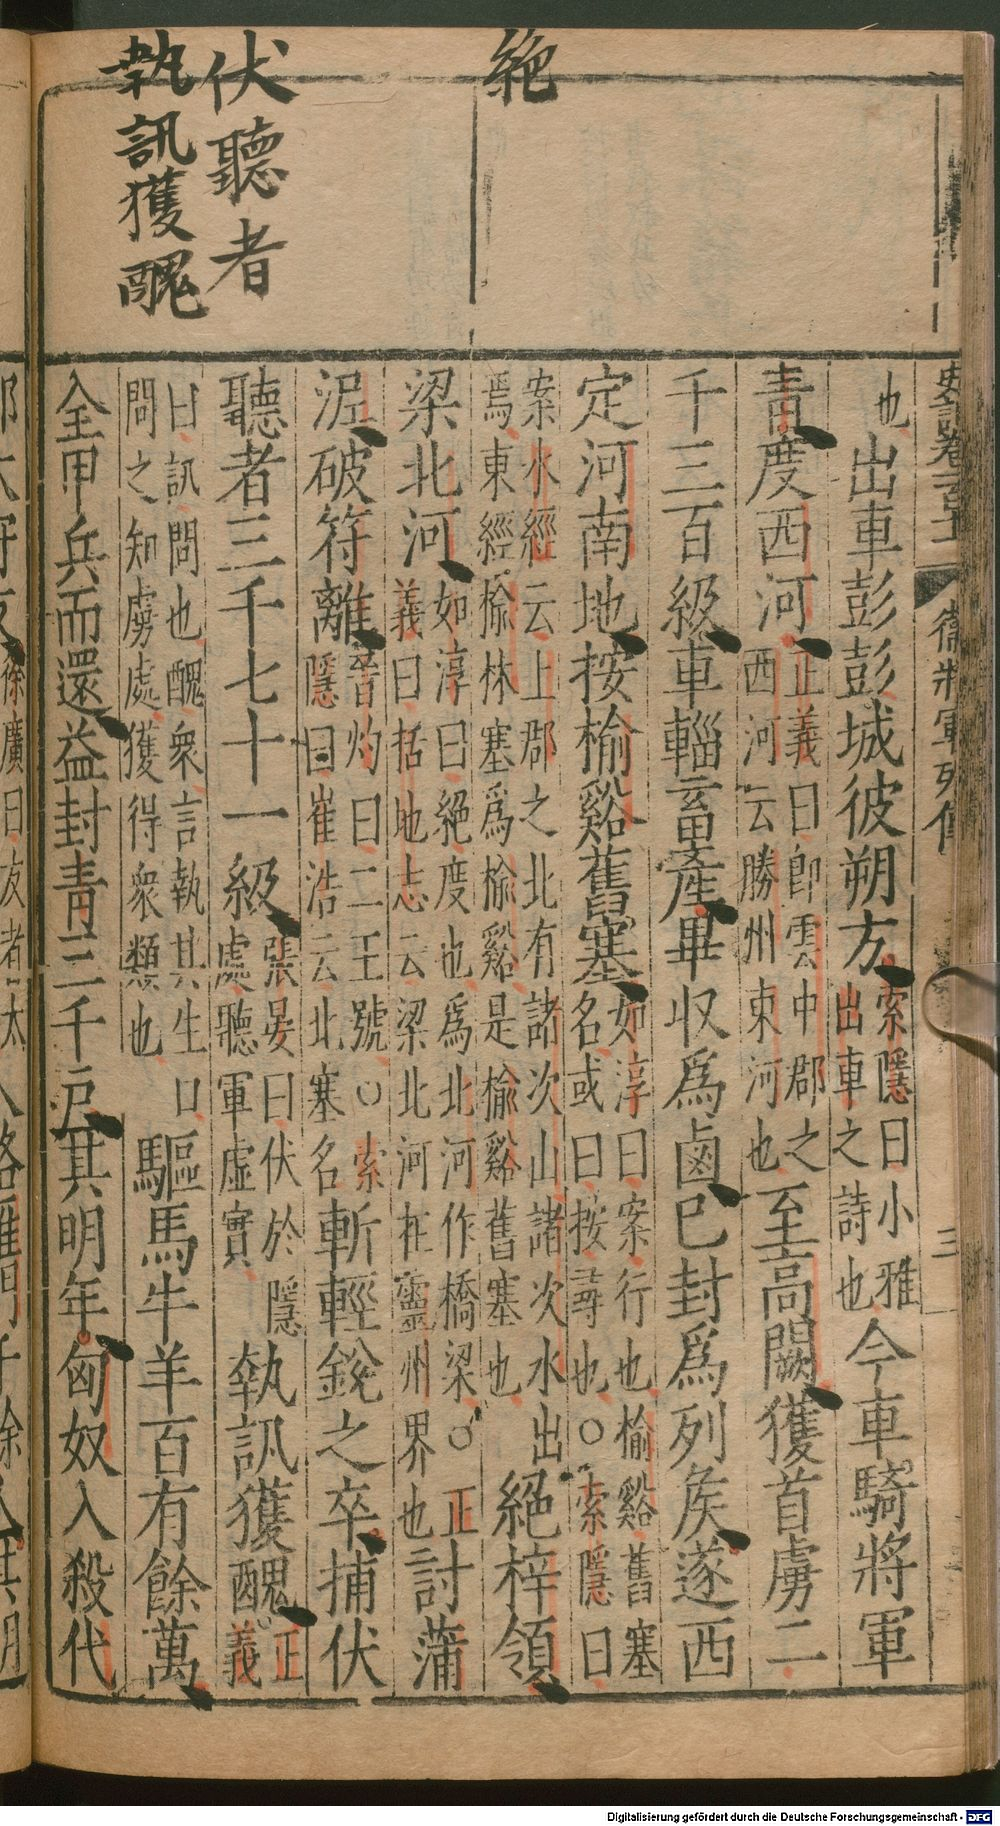 絕
伏聽者
執訊獲醜
衛將軍列傳
三
也出車彭彭城彼朔方索隱曰小雅
出車之詩也今車騎將軍
青度西河正義曰即雲中郡之
西河云勝州東河也至高闕獲首虜二
千三百級車輜畜產畢収爲鹵已封爲列侯遂西
定河南地按榆谿舊塞如淳曰案行也榆谿舊塞
名或曰按尋也○索隱曰
案水經云上郡之北有諸次山諸次水出
焉東經榆林塞爲榆谿是榆谿舊塞也絕梓領
梁北河如淳曰絕度也爲北河作橋梁○正
義曰括地志云梁北河在靈州界也討蒲
泥破符離晉灼曰二王號○索
隱曰崔浩云北塞名斬輕銳之卒捕伏
聽者三千七十一級張晏曰伏於隱
處聽軍虛實執訊獲醜正
義
曰訊問也醜衆言執其生口
問之知虜處獲得衆類也驅馬牛羊百有餘萬
全甲兵而還益封青三千戶其明年匈奴入殺代
徐廣曰友者太
Digitalisierung gefördert durch die Deutsche Forschungsgemeinschaft - DFG